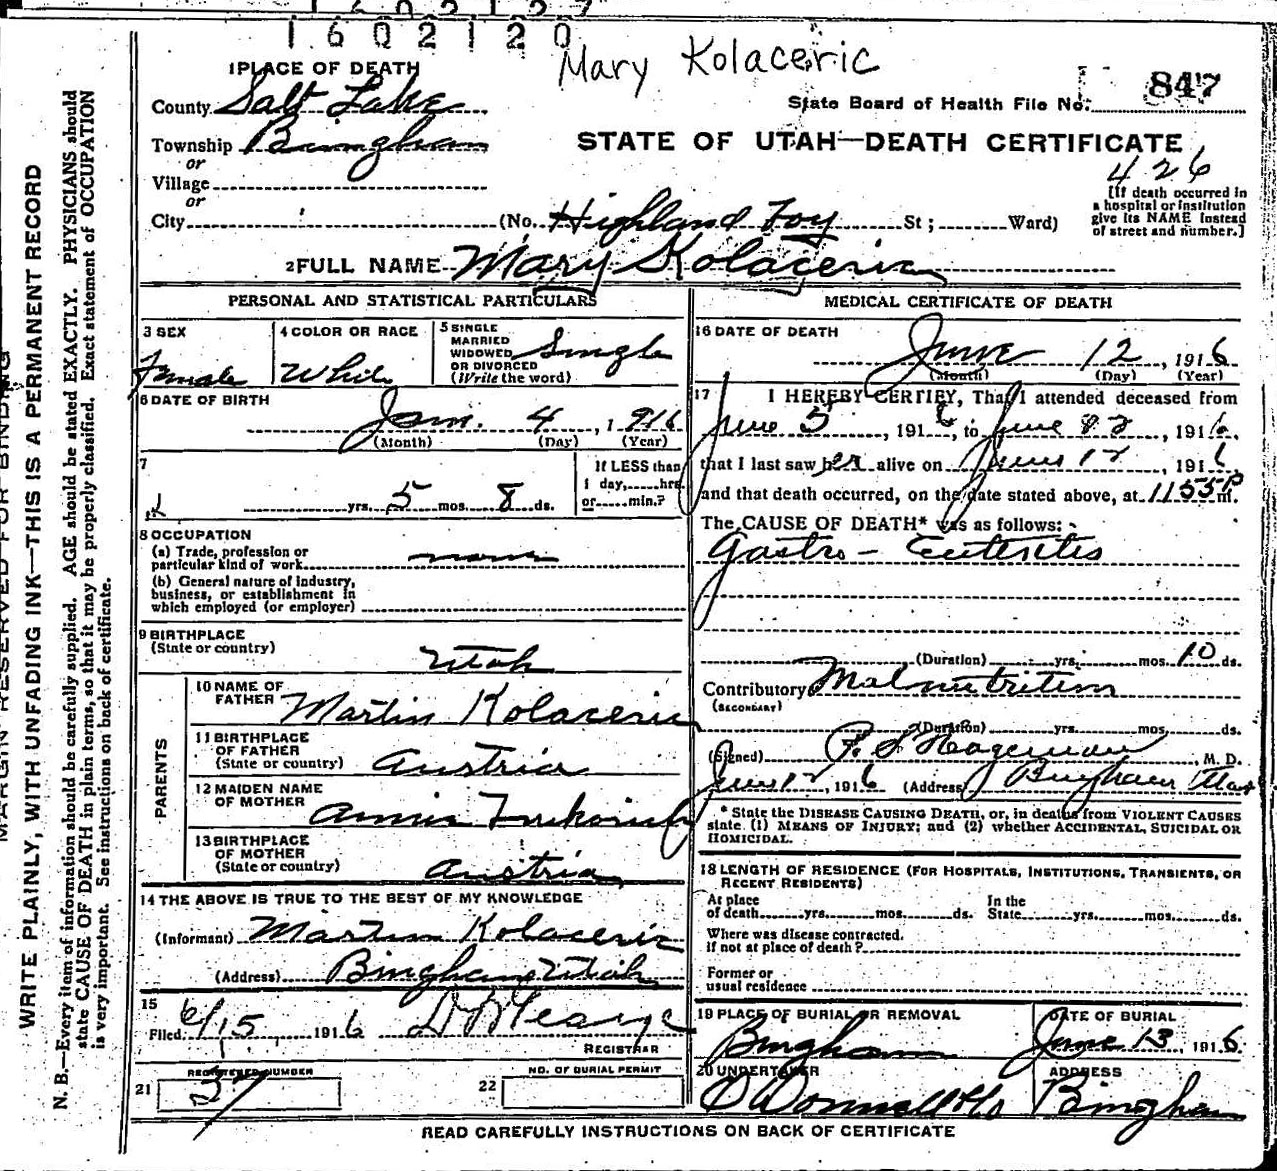 1602127
1602120
Mary Kolaceric
1 PLACE OF DEATH
County Salt Lake
Township Bingham
or
Village
or
City
State Board of Health File No. 847
STATE OF UTAH—DEATH CERTIFICATE
426
[If death occurred in
a hospital or institution
give its NAME instead
of street and number.]
(No. Highland Foy St; Ward)
2 FULL NAME Mary Kolaceric
PERSONAL AND STATISTICAL PARTICULARS
3 SEX
Female
4 COLOR OR RACE
White
5 SINGLE
MARRIED
WIDOWED
OR DIVORCED
(Write the word)
Single
6 DATE OF BIRTH
Jan. 4, 1916
(Month) (Day) (Year)
7
yrs. 5 mos. 8 ds.
If LESS than
1 day, hrs.
or min.?
8 OCCUPATION
(a) Trade, profession or
particular kind of work none
(b) General nature of industry,
business, or establishment in
which employed (or employer)
9 BIRTHPLACE
(State or country)
Utah
PARENTS
10 NAME OF
FATHER Martin Kolaceric
11 BIRTHPLACE
OF FATHER
(State or country) Austria
12 MAIDEN NAME
OF MOTHER
Annie
13 BIRTHPLACE
OF MOTHER
(State or country) Austria
14 THE ABOVE IS TRUE TO THE BEST OF MY KNOWLEDGE
(Informant) Martin Kolaceric
(Address) Bingham Utah
15
Filed 6/15 1916
REGISTRAR
REGISTERED NUMBER
21 37
NO. OF BURIAL PERMIT
22
MEDICAL CERTIFICATE OF DEATH
16 DATE OF DEATH
June 12, 1916
(Month) (Day) (Year)
17 I HEREBY CERTIFY, That I attended deceased from
June 5, 1916, to June 12, 1916,
that I last saw her alive on June 12, 1916,
and that death occurred, on the date stated above, at 11 55 P m.
The CAUSE OF DEATH* was as follows:
Gastro-Enteritis
(Duration) yrs. mos. 10 ds.
Contributory Malnutrition
(SECONDARY)
(Duration) yrs. mos. ds.
(Signed) P. S. Hageman, M. D.
June 12, 1916 (Address) Bingham Utah
* State the DISEASE CAUSING DEATH, or, in deaths from VIOLENT CAUSES
state (1) MEANS OF INJURY; and (2) whether ACCIDENTAL, SUICIDAL OR
HOMICIDAL.
18 LENGTH OF RESIDENCE (FOR HOSPITALS, INSTITUTIONS, TRANSIENTS, OR
RECENT RESIDENTS)
At place
of death yrs. mos. ds.
In the
State yrs. mos. ds.
Where was disease contracted,
if not at place of death?
Former or
usual residence
19 PLACE OF BURIAL OR REMOVAL
Bingham
DATE OF BURIAL
June 13, 1916
20 UNDERTAKER
O'Donnell & Co
ADDRESS
Bingham
READ CAREFULLY INSTRUCTIONS ON BACK OF CERTIFICATE
MARGIN RESERVED FOR BINDING
WRITE PLAINLY, WITH UNFADING INK—THIS IS A PERMANENT RECORD
N. B.—Every item of information should be carefully supplied. AGE should be stated EXACTLY. PHYSICIANS should
state CAUSE OF DEATH in plain terms, so that it may be properly classified. Exact statement of OCCUPATION
is very important. See instructions on back of certificate.